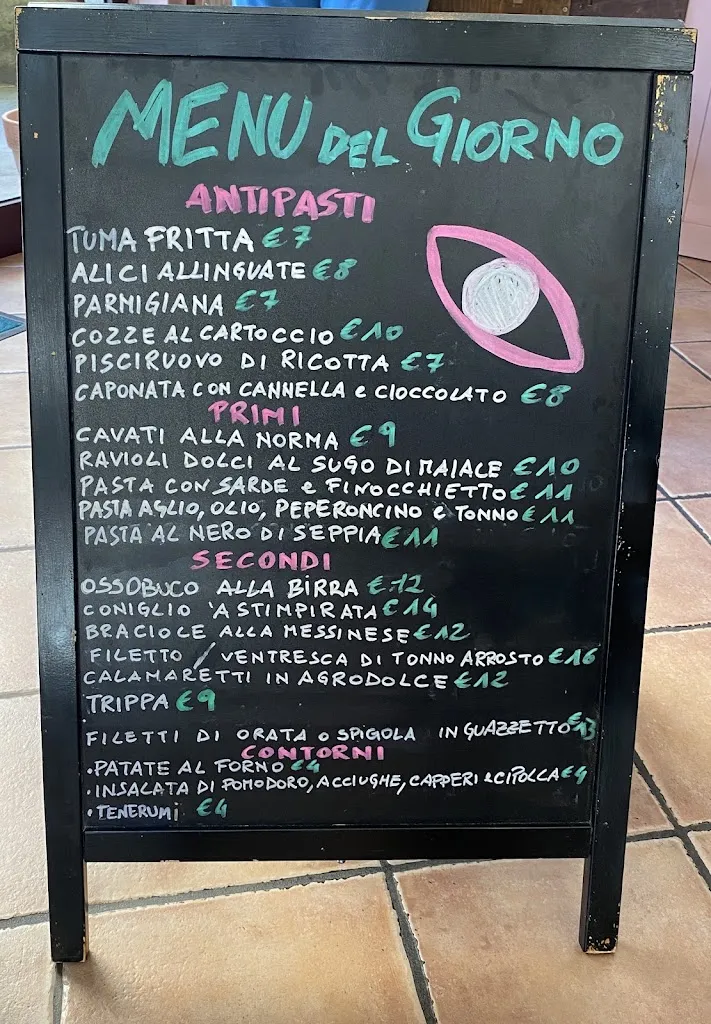 MENU DEL GIORNO
ANTIPASTI
TUMA FRITTA €7
ALICI ALLINGUATE €8
PARMIGIANA €7
COZZE AL CARTOCCIO €10
PISCIRUOVO DI RICOTTA €7
CAPONATA CON CANNELLA e CIOCCOLATO €8
PRIMI
CAVATI ALLA NORMA €9
RAVIOLI DOLCI AL SUGO DI MAIALE €10
PASTA CON SARDE e FINOCCHIETTO €11
PASTA AGLIO, OLIO, PEPERONCINO e TONNO €11
PASTA AL NERO DI SEPPIA €11
SECONDI
OSSOBUCO ALLA BIRRA €12
CONIGLIO 'A STIMPIRATA €14
BRACIOLE ALLA MESSINESE €12
FILETTO / VENTRESCA DI TONNO ARROSTO €16
CALAMARETTI IN AGRODOLCE €12
TRIPPA €9
FILETTI DI ORATA O SPIGOLA IN GUAZZETTO €13
CONTORNI
•PATATE AL FORNO €4
•INSALATA DI POMODORO, ACCIUGHE, CAPPERI e CIPOLLA €4
•TENERUMI €4